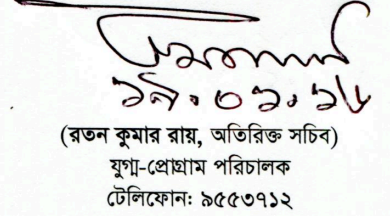 (রতন কুমার রায়, অতিরিক্ত সচিব)
যুগ্ম-প্রোগ্রাম পরিচালক
টেলিফোন: ৯৫৫৩৭১২